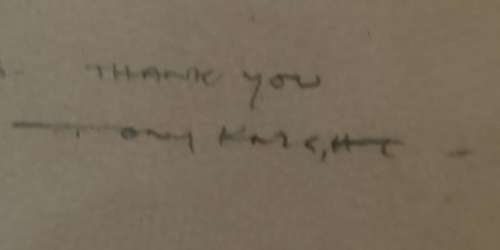 THANK YOU
Tony Knight